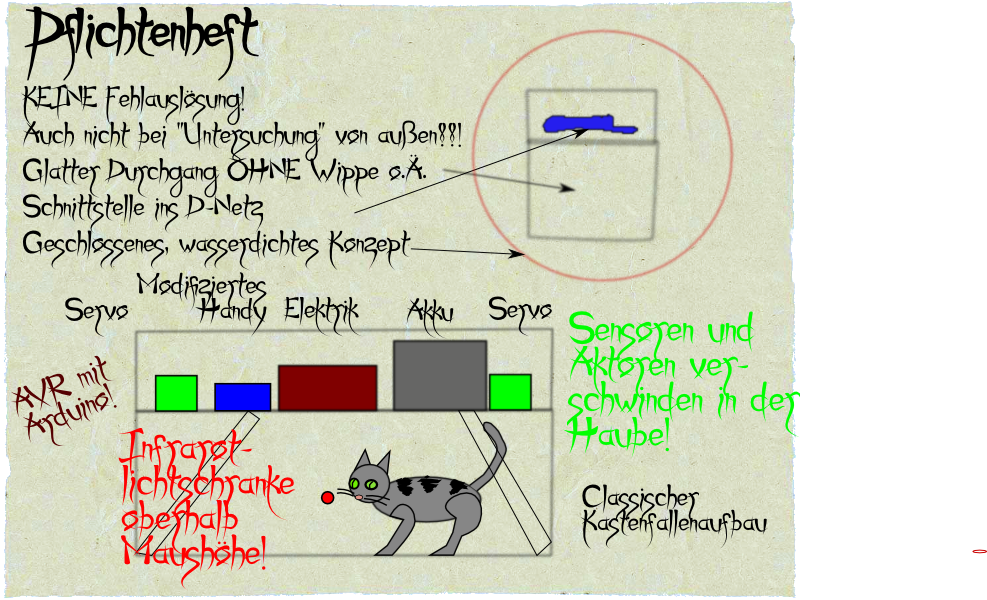 Pflichtenheft
KEINE Fehlauslösung!
Auch nicht bei "Untersuchung" von außen??!
Glatter Durchgang OHNE Wippe o.Ä.
Schnittstelle ins D-Netz
Geschlossenes, wasserdichtes Konzept
Modifiziertes
Servo Handy Elektrik Akku Servo
AVR mit
Arduino!
Sensoren und
Aktoren ver-
schwinden in der
Haube!
Infrarot-
lichtschranke
oberhalb
Maushöhe!
Classischer
Kastenfallenaufbau